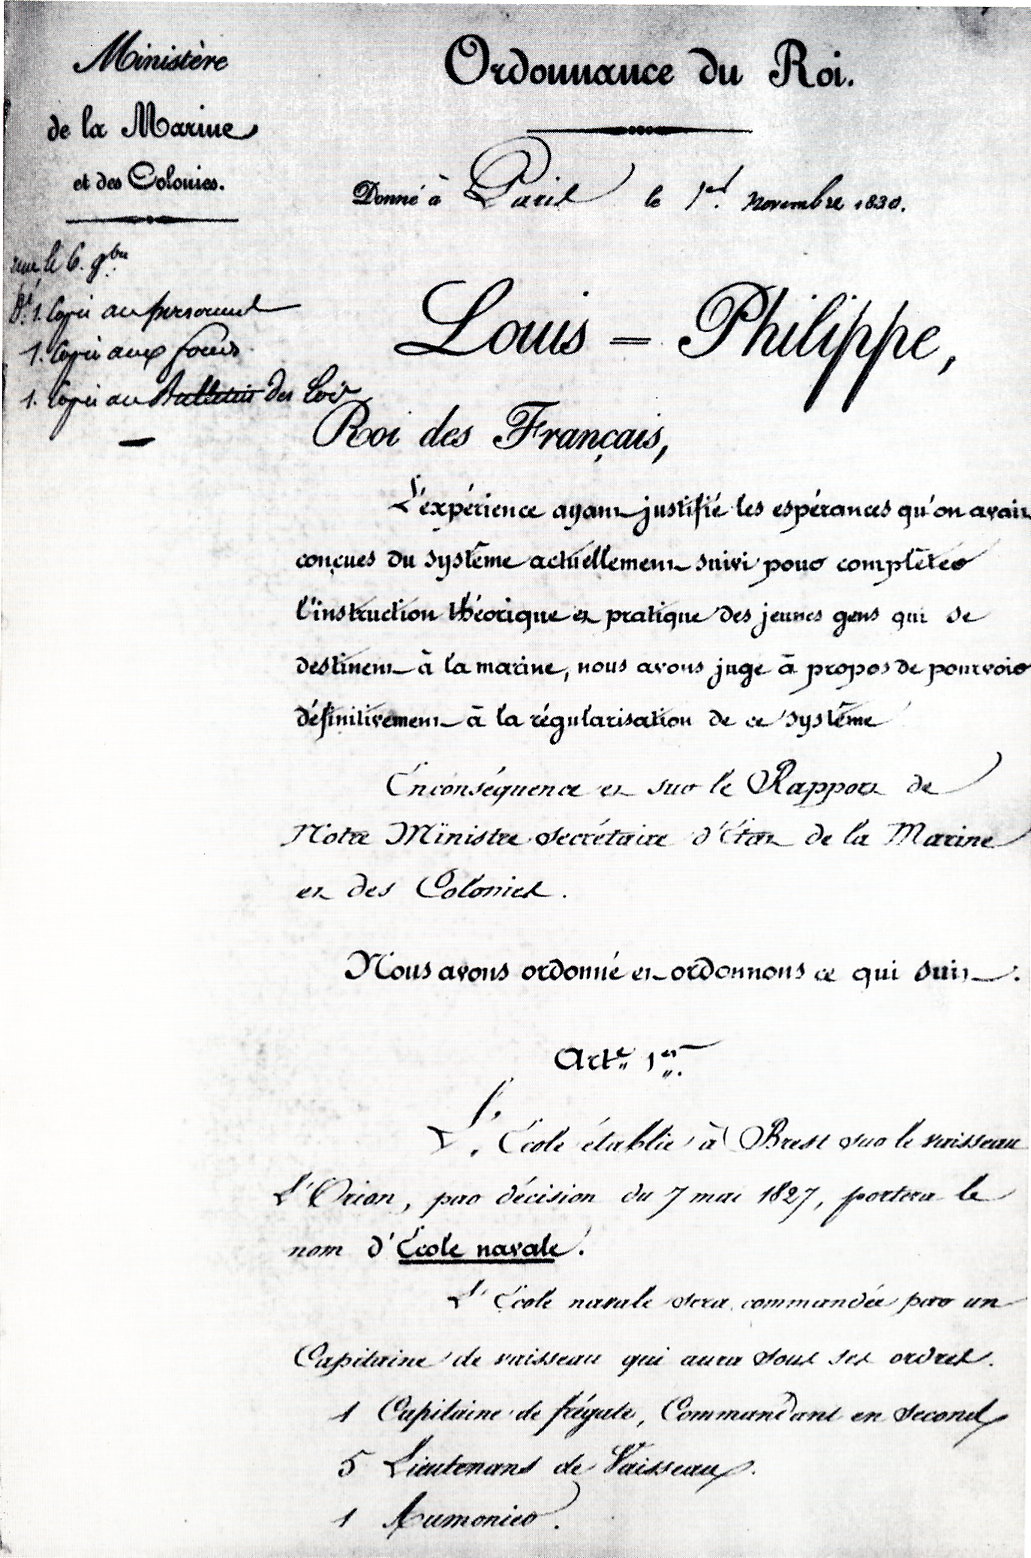 Ministère
de la Marine
et des Colonies.
Ordonnance du Roi.
Donné à Paris le 1er. novembre 1830.
le 6. 9bre
1. Copie au personnel
1. Copie aux fonds
1. Copie au Bulletin des Lois
Louis = Philippe,
Roi des Français,
L'expérience ayant justifié les espérances qu'on avait
conçues du système actuellement suivi pour compléter
l'instruction théorique et pratique des jeunes gens qui se
destinent à la marine, nous avons jugé à propos de pourvoir
définitivement à la régularisation de ce système
En conséquence et sur le Rapport de
Notre Ministre secrétaire d'État de la Marine
et des Colonies.
Nous avons ordonné et ordonnons ce qui suit.
Arte. 1er.
L'École établie à Brest sur le vaisseau
L'Orion, par décision du 7 mai 1827, portera le
nom d'École navale.
L'École navale sera commandée par un
Capitaine de vaisseau qui aura sous ses ordres.
1 Capitaine de frégate, Commandant en second
5 Lieutenans de Vaisseau.
1 Aumonier.